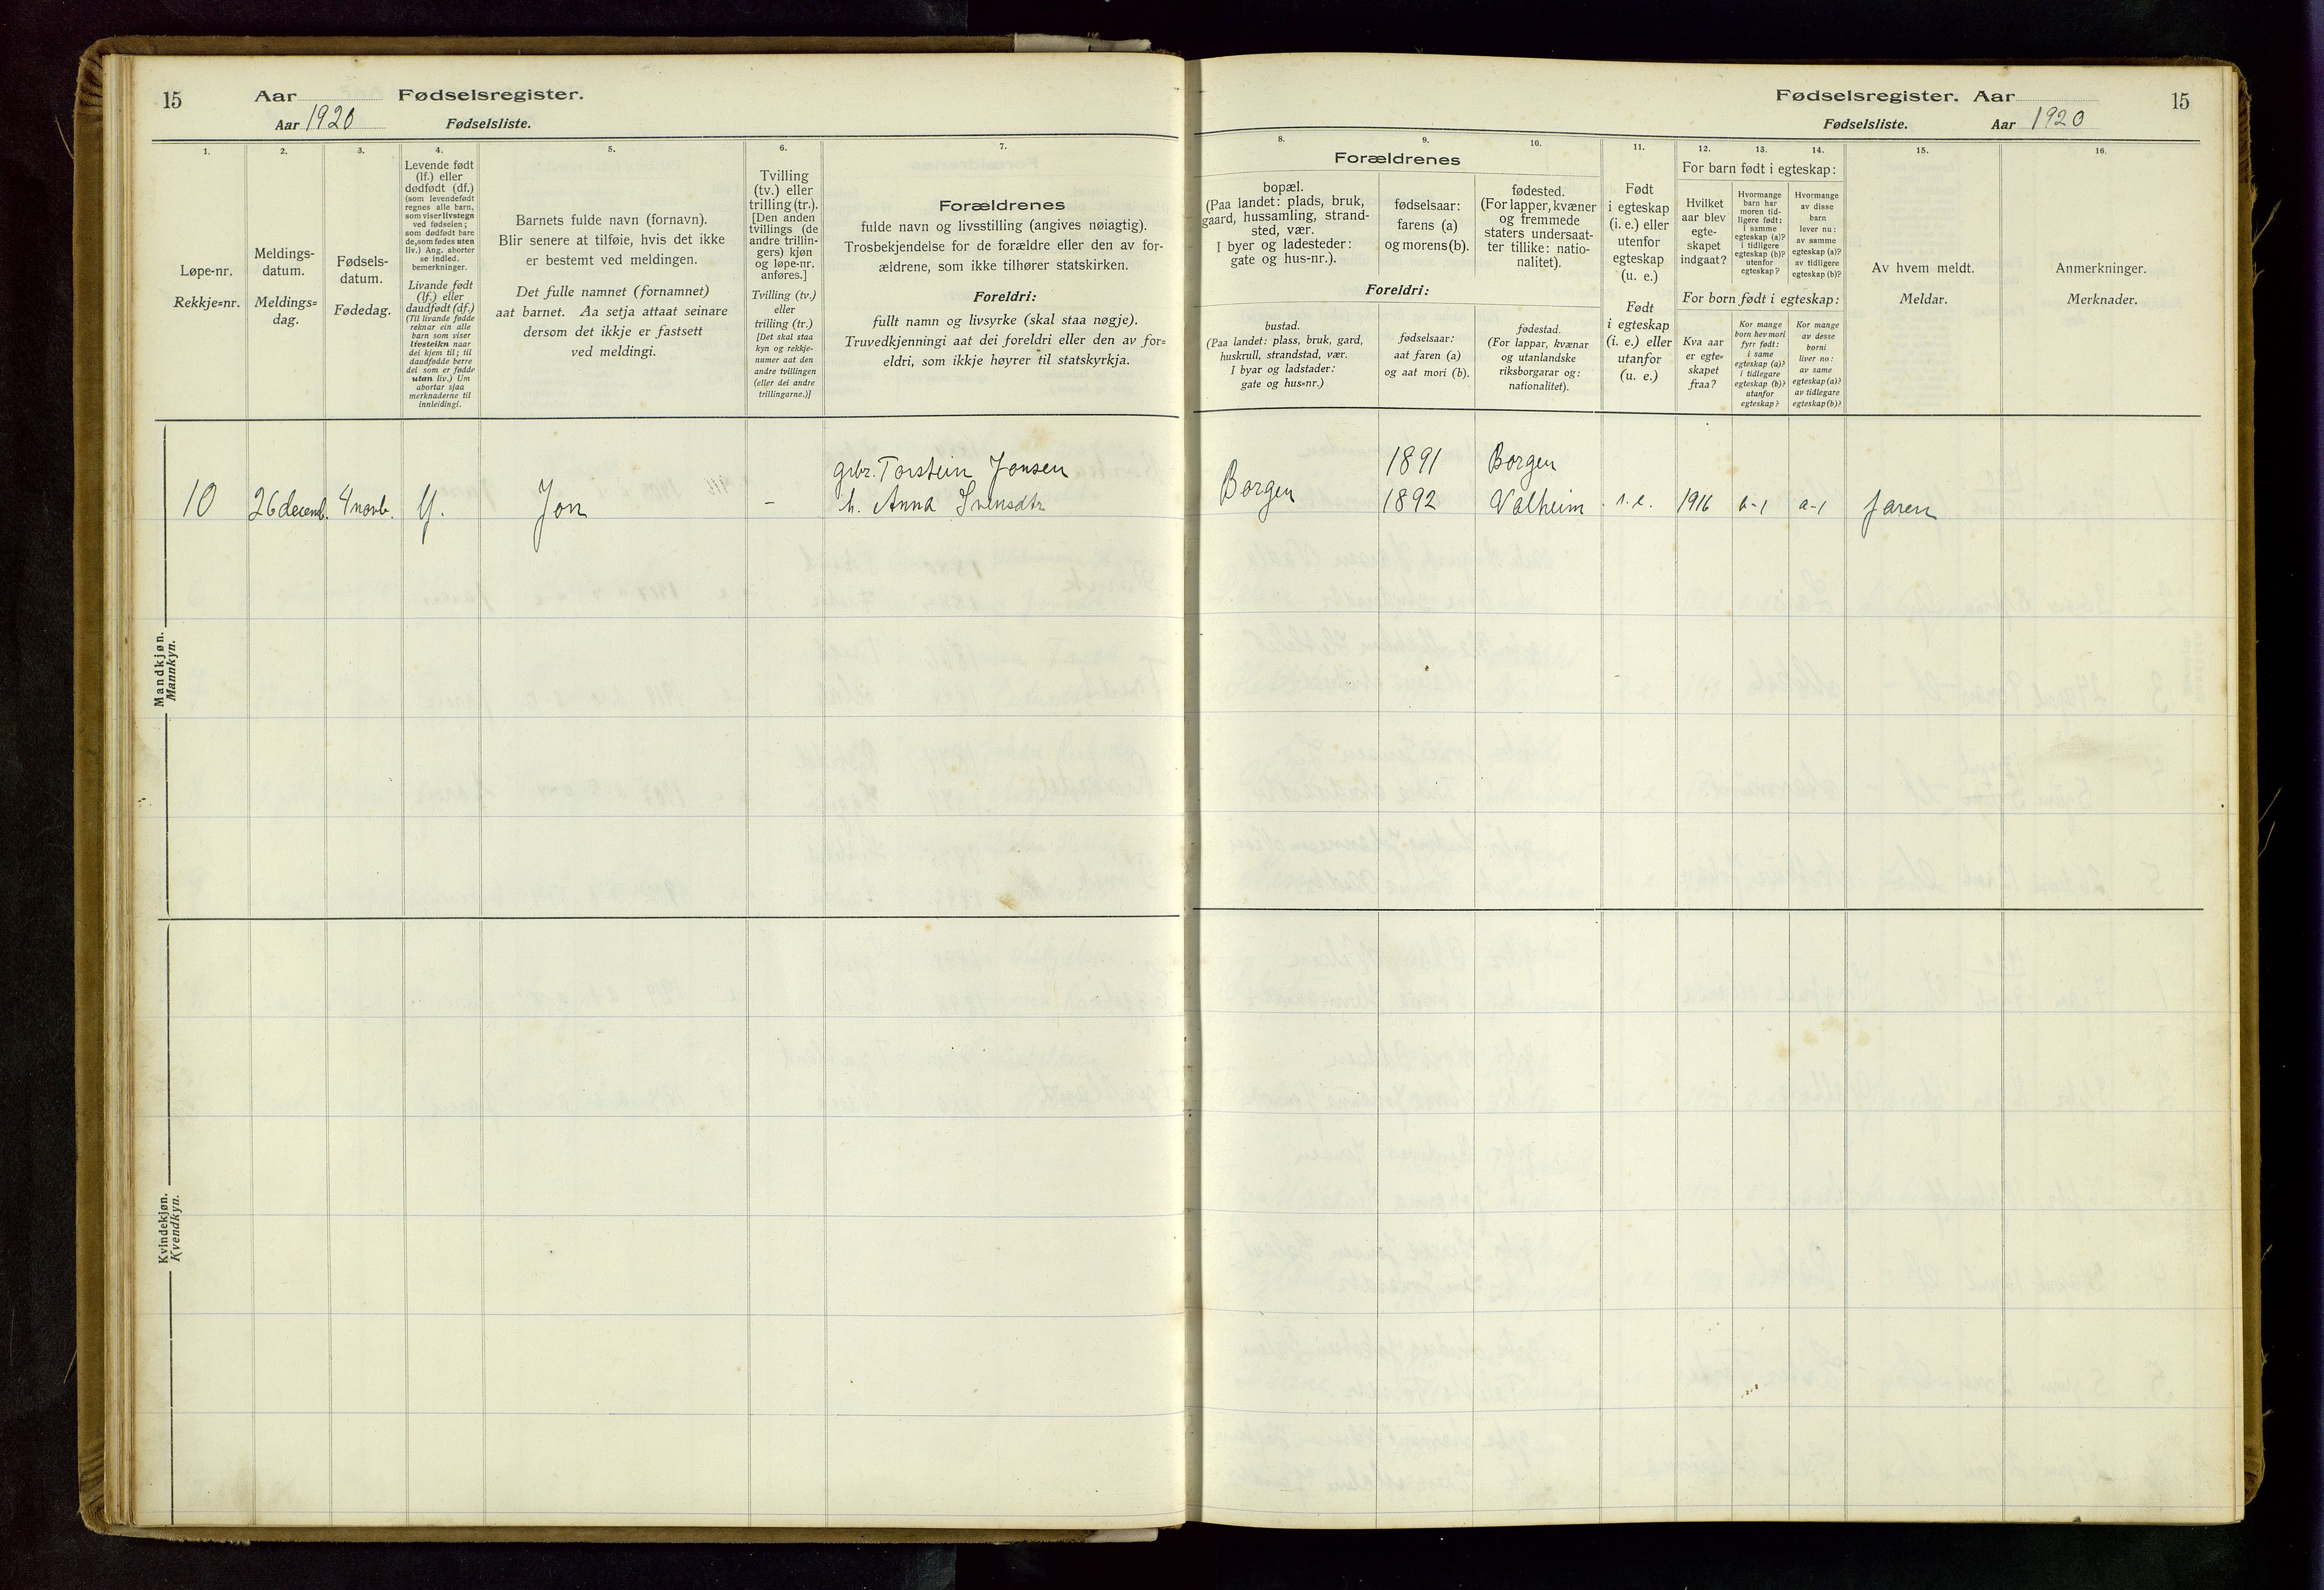 15
Aar
Fødselsregister.
Aar 1920
Fødselsliste.
1.
Løpe-nr.
Rekkje=nr.
2.
Meldings-
datum.
Meldings=
dag.
3.
Fødsels-
datum.
Fødedag.
4.
Levende født
(lf.) eller
dødfødt (df.)
(som levendefødt
regnes alle barn,
som viser livstegn
ved fødselen;
som dødfødt bare
de, som fødes uten
liv.) Ang. aborter
se indled.
bemerkninger.
Livande født
(lf.) eller
daudfødt (df.)
(Til livande fødde
reknar ein alle
barn som viser
livsteikn naar
dei kjem til; til
daudfødde berre
dei som er fødde
utan liv.) Um
abortar sjaa
merknaderne til
innleidingi.
5.
Barnets fulde navn (fornavn).
Blir senere at tilføie, hvis det ikke
er bestemt ved meldingen.
Det fulle namnet (fornamnet)
aat barnet. Aa setja attaat seinare
dersom det ikkje er fastsett
ved meldingi.
6.
Tvilling
(tv.) eller
trilling (tr.).
[Den anden
tvillings (de
andre trillin-
gers) kjøn
og løpe-nr.
anføres.]
Tvilling (tv.)
eller
trilling (tr.)
[Det skal staa
kyn og rekkje-
numer aat den
andre tvillingen
(eller dei andre
trillingarne.)]
7.
Forældrenes
fulde navn og livsstilling (angives nøiagtig).
Trosbekjendelse for de forældre eller den av for-
ældrene, som ikke tilhører statskirken.
Foreldri:
fullt namn og livsyrke (skal staa nøgje).
Truvedkjenningi aat dei foreldri eller den av for=
eldri, som ikkje høyrer til statskyrkja.
Mandkjøn.
Mannkyn.
10
26 decemb.
4 novb.
lf.
Jon
–
gbr. Torstein Jonsen
h. Anna Svensdtr
Kvindekjøn.
Kvendkyn.
Fødselsregister. Aar
15
Fødselsliste.
Aar 1920
8.
9.
10.
Forældrenes
bopæl.
(Paa landet: plads, bruk,
gaard, hussamling, strand-
sted, vær.
I byer og ladesteder:
gate og hus-nr.).
fødselsaar:
farens (a)
og morens (b).
fødested.
(For lapper, kvæner
og fremmede
staters undersaat-
ter tillike: natio-
nalitet).
Foreldri:
bustad.
(Paa landet: plass, bruk, gard,
huskrull, strandstad, vær.
I byar og ladstader:
gate og hus=nr.)
fødselsaar:
aat faren (a)
og aat mori (b).
fødestad.
(For lappar, kvænar
og utanlandske
riksborgarar og:
nationalitet).
11.
Født
i egteskap
(i. e.) eller
utenfor
egteskap
(u. e.)
Født
i egteskap
(i. e.) eller
utanfor
(u. e.)
12.
13.
14.
For barn født i egteskap:
Hvilket
aar blev
egte-
skapet
indgaat?
Hvormange
barn har
moren tid-
ligere født:
i samme
egteskap (a)?
i tidligere
egteskap (b)?
utenfor
egteskap?
Hvormange
av disse
barn
lever nu:
av samme
egteskap (a)?
av tidligere
egteskap (b)?
For born født i egteskap:
Kva aar
er egte=
skapet
fraa?
Kor mange
born hev mori
fyrr født:
i same
egteskap (a)?
i tidlegare
egteskap (b)?
utanfor
egteskap?
Kor mange
av desse
borni
liver no:
av same
egteskap (a)?
av tidlegare
egteskap (b)?
15.
Av hvem meldt.
Meldar.
16.
Anmerkninger.
Merknader.
Borgen
1891
1892
Borgen
Valheim
i. e.
1916
a-1
a-1
faren